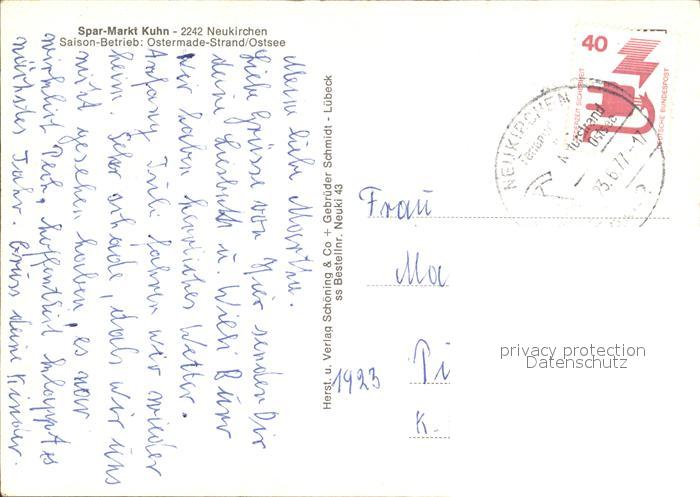 Spar-Markt Kuhn - 2242 Neukirchen
Saison-Betrieb: Ostermade-Strand/Ostsee
Meine liebe Martha.
Liebe Grüsse von Hier senden Dir
deine Lisbeth u. Willi Burr
wir haben herrliches Wetter.
Anfang Juli fahren wir wieder
heim. Sehr schade, dals wir uns
nicht gesehen haben, es war
wirklich Pech, hoffentlich klappt es
nächstes Jahr. Gruss deine Kinder.
Herst. u. Verlag Schöning & Co + Gebrüder Schmidt - Lübeck
ss Bestellnr. Neuki 43
40
JEDERZEIT SICHERHEIT
DEUTSCHE BUNDESPOST
NEUKIRCHEN
Naturstrand
Ostsee
23.6.77-17
Frau
Ma
1923 Pi
K.
privacy protection
Datenschutz